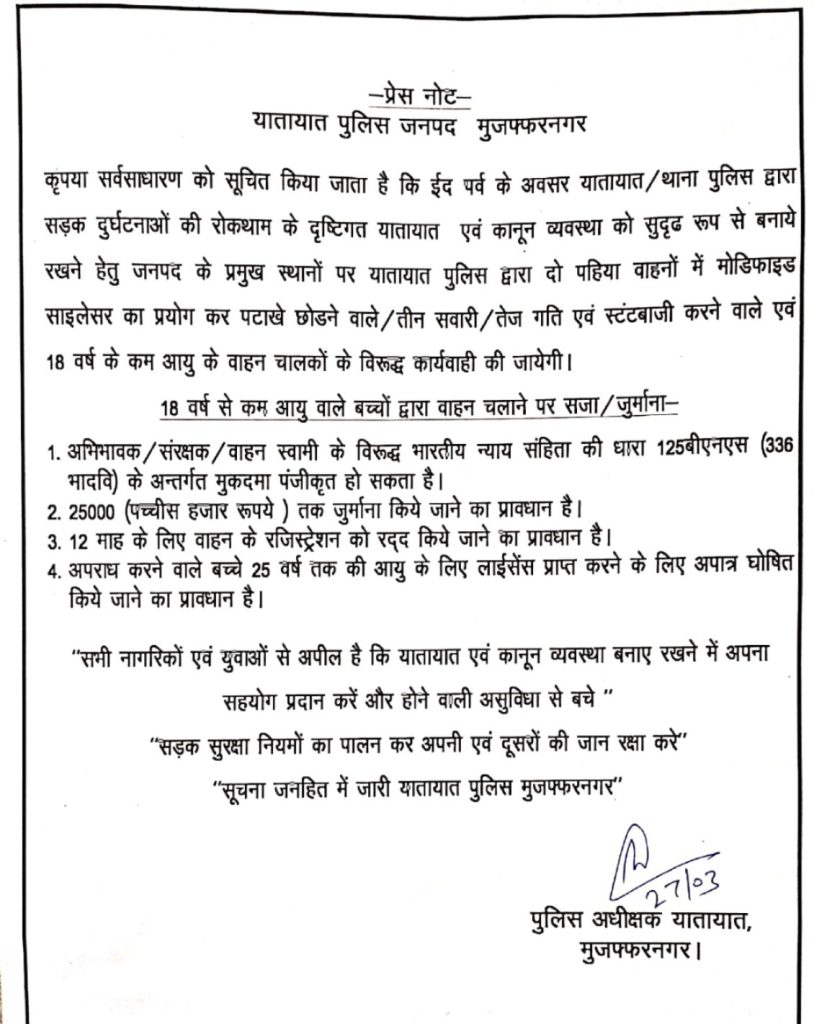 –प्रेस नोट–
यातायात पुलिस जनपद मुजफ्फरनगर
कृपया सर्वसाधारण को सूचित किया जाता है कि ईद पर्व के अवसर यातायात/थाना पुलिस द्वारा
सड़क दुर्घटनाओं की रोकथाम के दृष्टिगत यातायात एवं कानून व्यवस्था को सुदृढ रूप से बनाये
रखने हेतु जनपद के प्रमुख स्थानों पर यातायात पुलिस द्वारा दो पहिया वाहनों में मोडिफाइड
साइलेसर का प्रयोग कर पटाखे छोडने वाले/तीन सवारी/तेज गति एवं स्टंटबाजी करने वाले एवं
18 वर्ष के कम आयु के वाहन चालकों के विरूद्ध कार्यवाही की जायेगी।
18 वर्ष से कम आयु वाले बच्चों द्वारा वाहन चलाने पर सजा/जुर्माना–
1. अभिभावक/संरक्षक/वाहन स्वामी के विरूद्ध भारतीय न्याय संहिता की धारा 125बीएनएस (336
भादवि) के अन्तर्गत मुकदमा पंजीकृत हो सकता है।
2. 25000 (पच्चीस हजार रूपये ) तक जुर्माना किये जाने का प्रावधान है।
3. 12 माह के लिए वाहन के रजिस्ट्रेशन को रद्द किये जाने का प्रावधान है।
4. अपराध करने वाले बच्चे 25 वर्ष तक की आयु के लिए लाईसेंस प्राप्त करने के लिए अपात्र घोषित
किये जाने का प्रावधान है।
"सभी नागरिकों एवं युवाओं से अपील है कि यातायात एवं कानून व्यवस्था बनाए रखने में अपना
सहयोग प्रदान करें और होने वाली असुविधा से बचे "
"सड़क सुरक्षा नियमों का पालन कर अपनी एवं दूसरों की जान रक्षा करे"
"सूचना जनहित में जारी यातायात पुलिस मुजफ्फरनगर"
27/03
पुलिस अधीक्षक यातायात,
मुजफ्फरनगर।